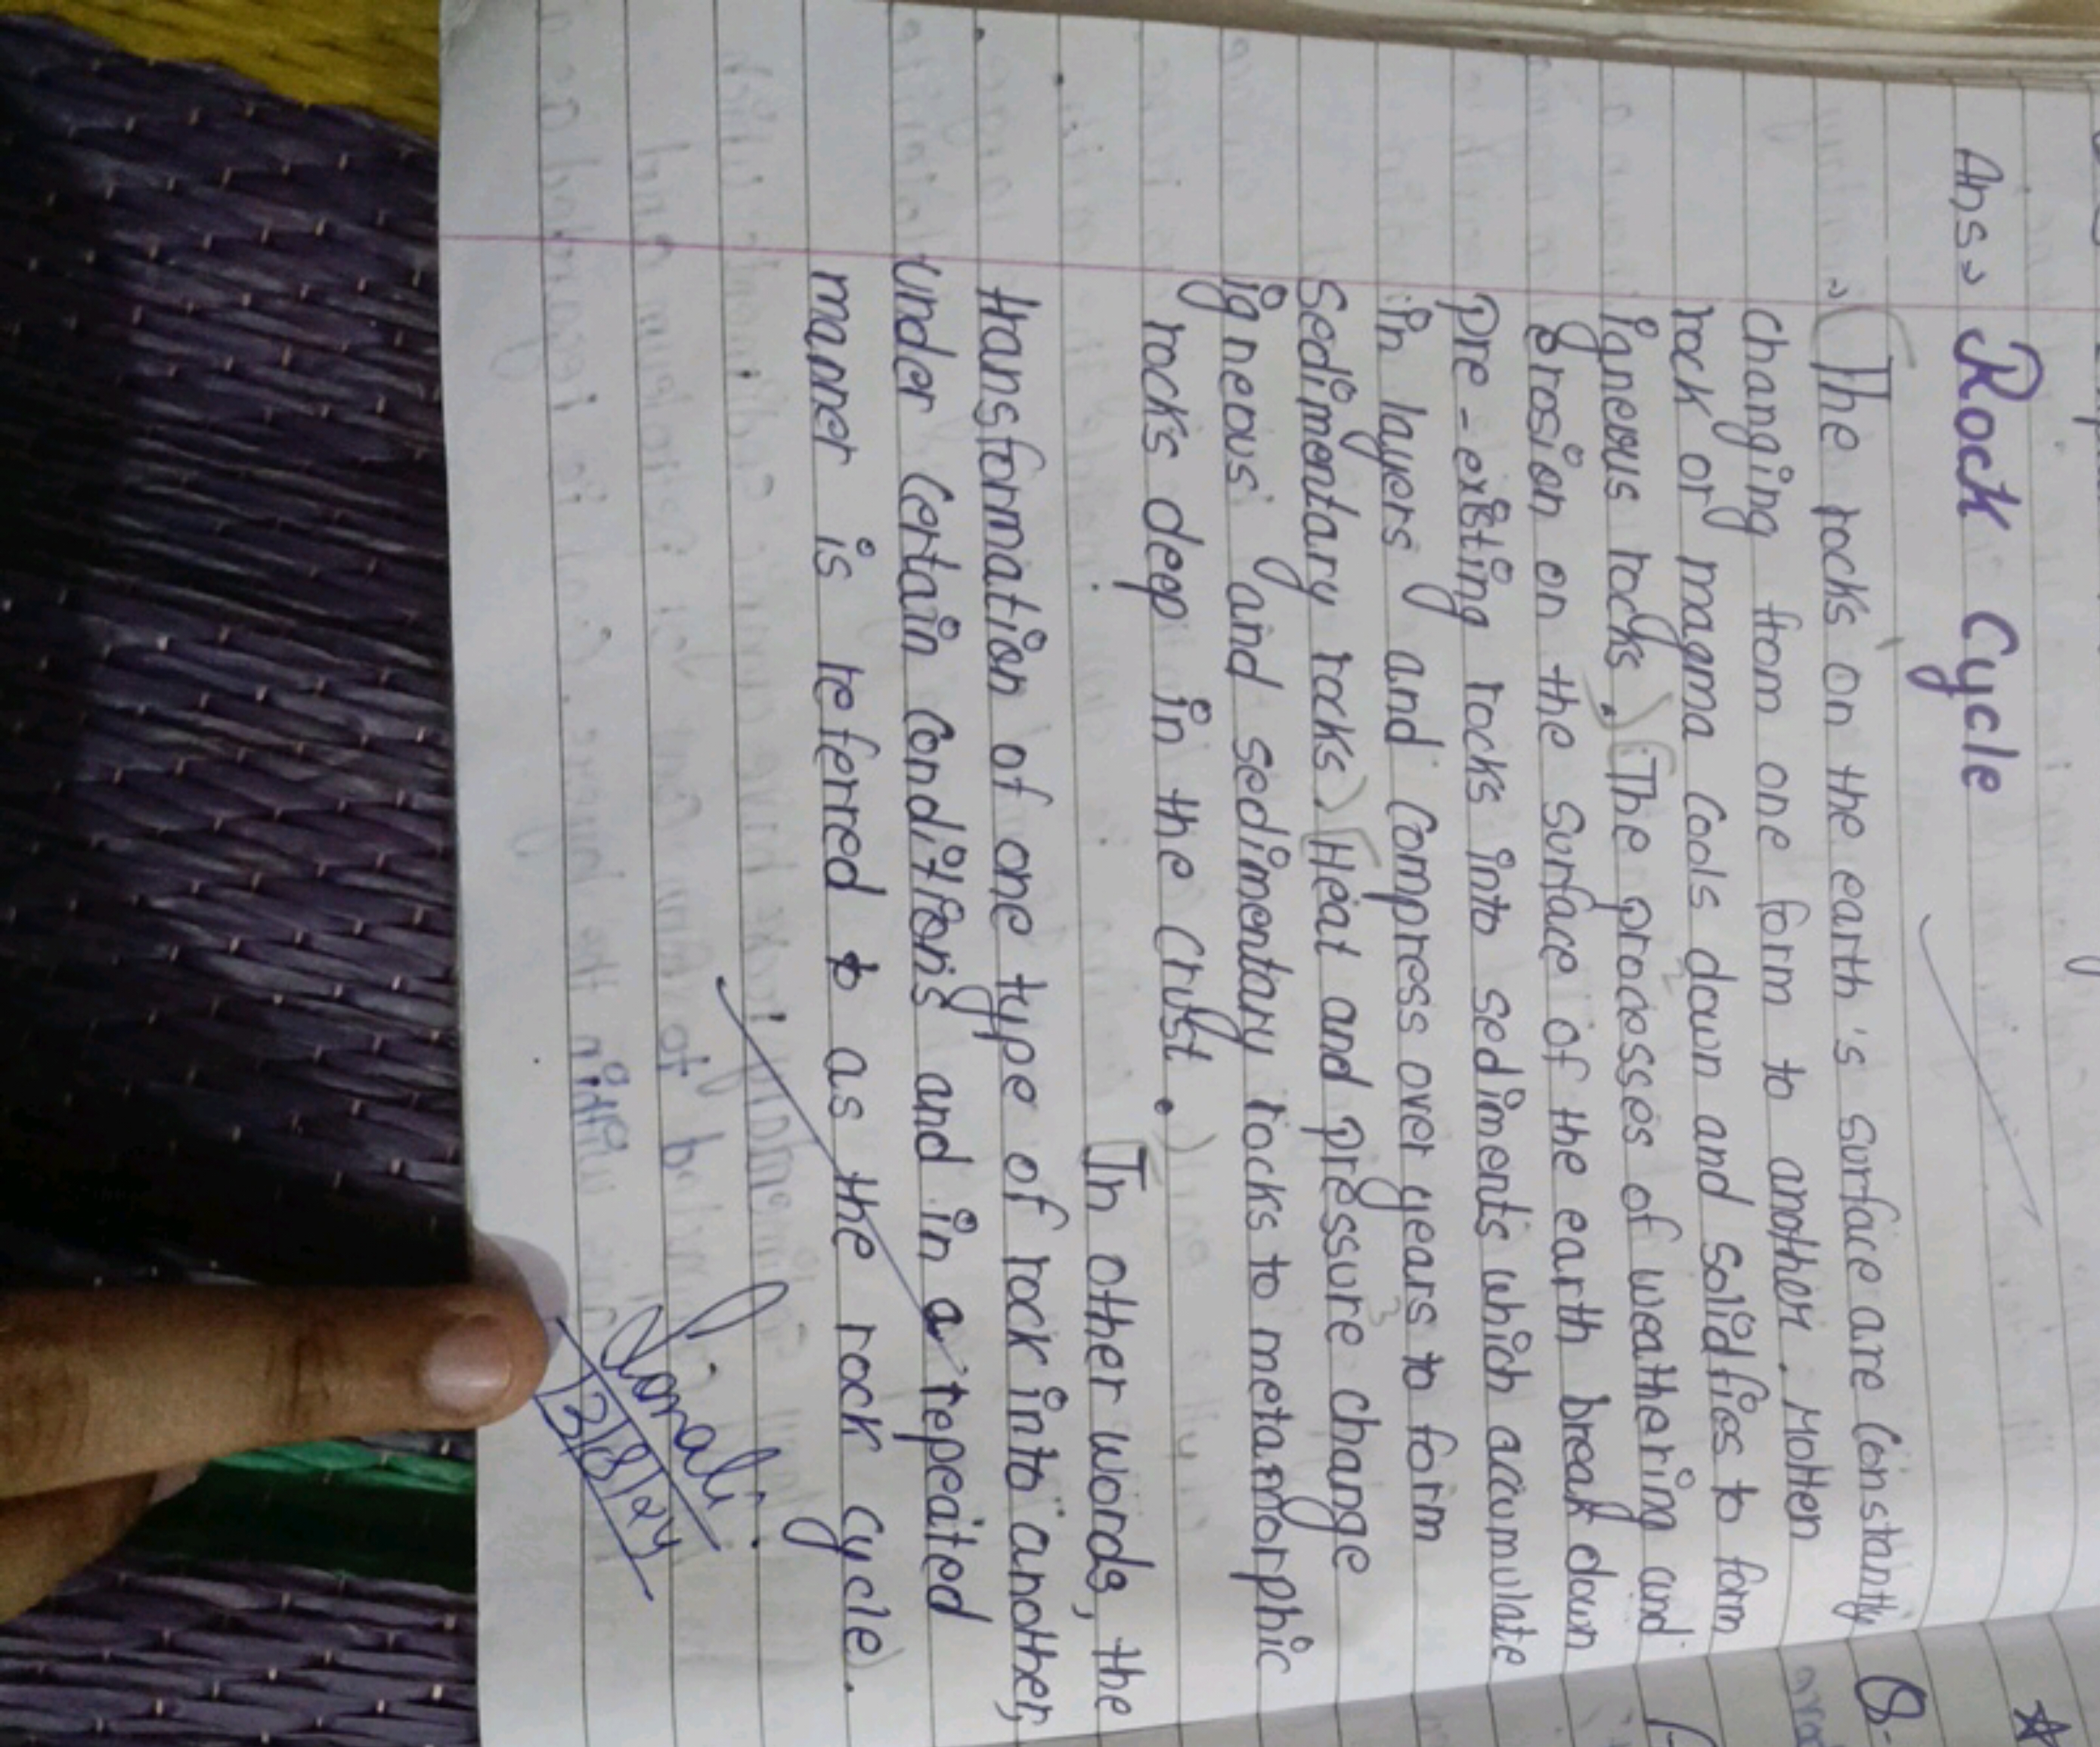 Ans→ Rock Cycle
→ The rocks on the earth's surface are constantly
changing from one form to another. Molten
rock or magma cools down and solidfies to form
igneous rocks. The processes of weathering and
erosion on the surface of the earth break down
pre-existing rocks into sediments which accumulate
in layers and compress over years to form
sedimentary rocks. Heat and pressure change
igneous and sedimentary rocks to metamorphic
rocks deep in the crust.
In other words, the
transformation of one type of rock into another,
under certain conditions and in a repeated
manner is referred to as the rock cycle.
Sonali
2/8/24
Q.